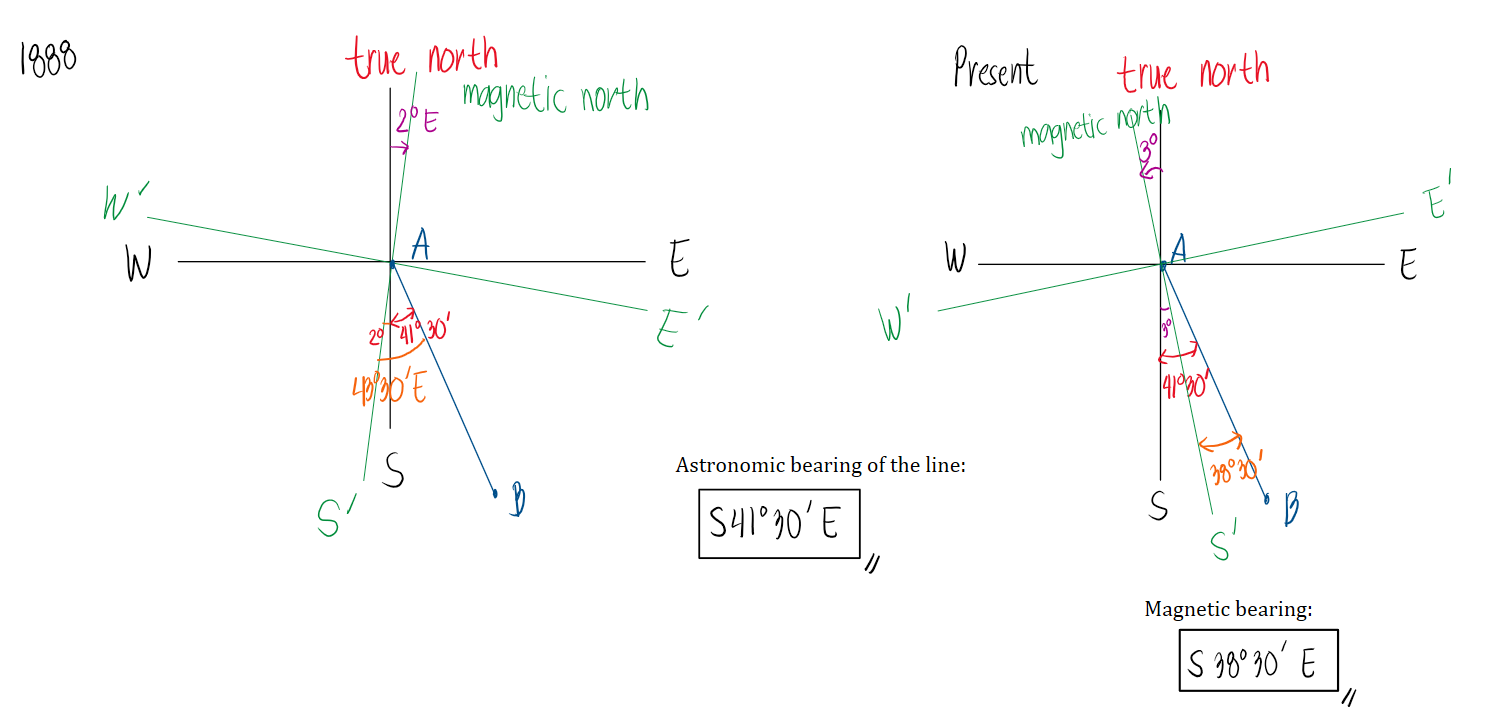 1888
true north
magnetic north
2° E
W'
W
A
E
E'
2°
41° 30'
43°30'E
S
S'
B
Astronomic bearing of the line:
S41°30'E
Present
true north
magnetic north
3°
E'
W
A
E
W'
3°
41°30'
38°30'
S
B
S'
Magnetic bearing:
S 38°30' E